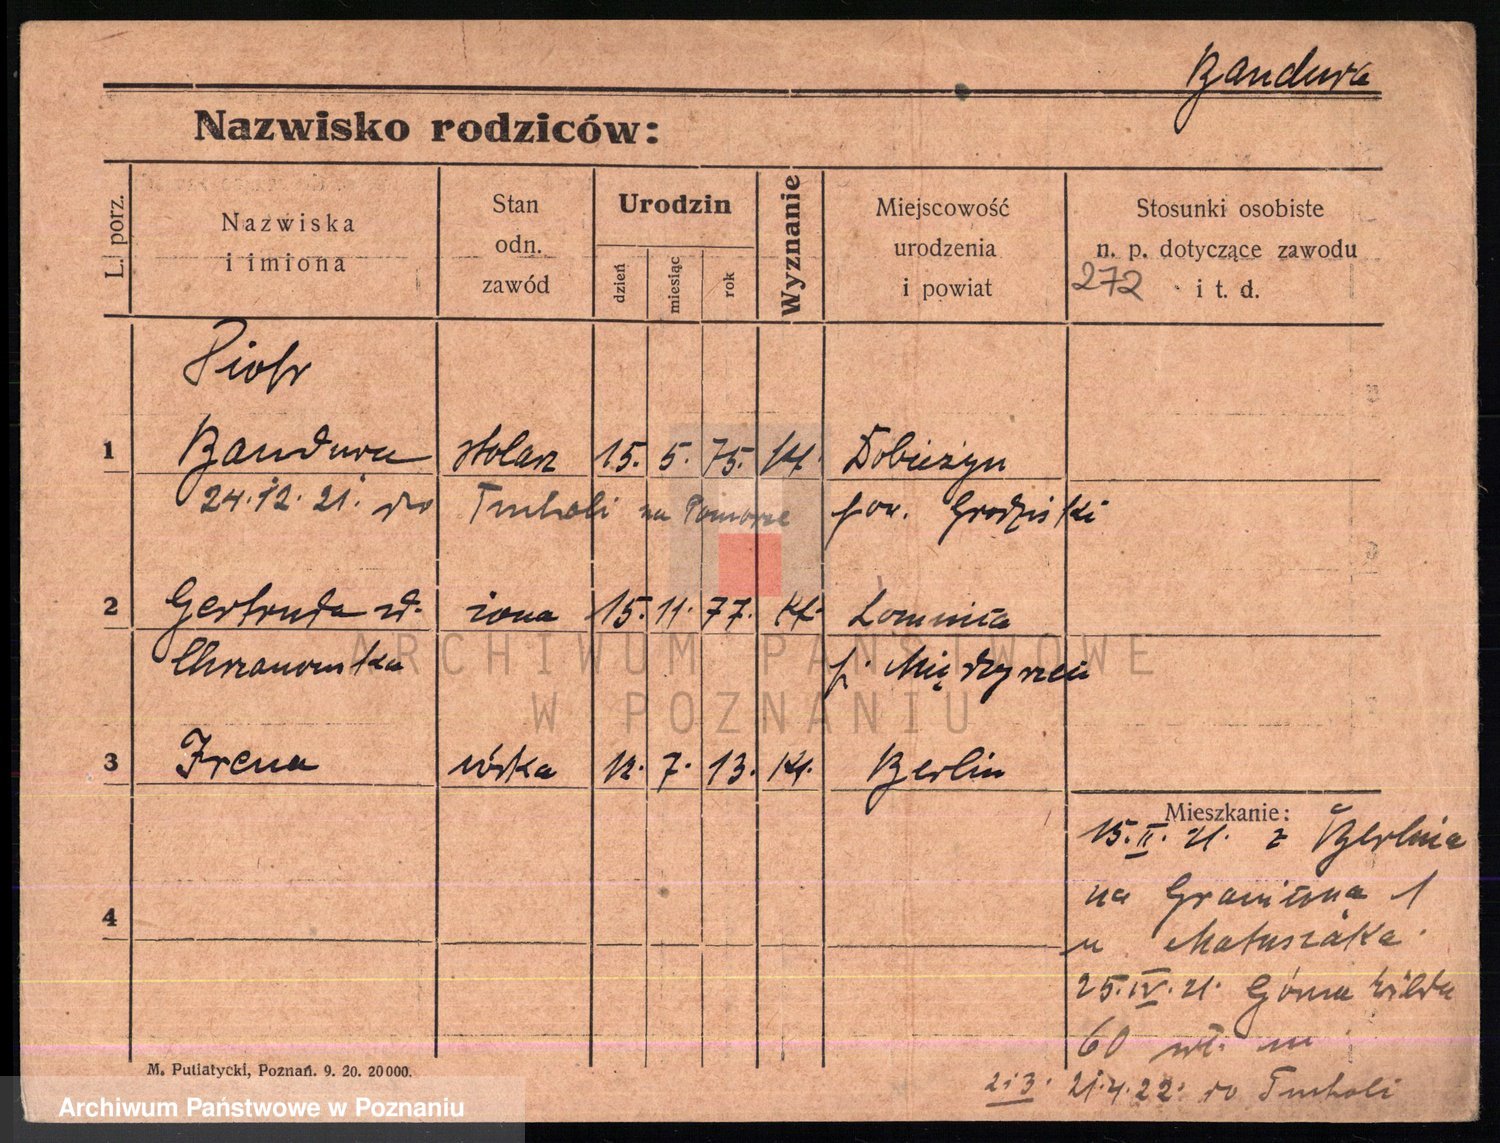 Bandura
Nazwisko rodziców:
L. porz.
Nazwiska
i imiona
Stan
odn.
zawód
Urodzin
dzień
miesiąc
rok
Wyznanie
Miejscowość
urodzenia
i powiat
Stosunki osobiste
n. p. dotyczące zawodu
i t. d.
272
Piotr
1 Bandura stolarz 15. 5. 75. kt. Dobieżyn
24.12.21. do Tucholi na Pomorze pow. Grodziski
2 Gertruda zd. żona 15. 11. 77. kt. Łomnica
Chrzanowska p. Międzyrzecz
3 Irena córka 12. 7. 13. kt. Berlin
Mieszkanie:
15.II.21. z Berlina
na Graniczna 1
u Matusiaka.
25.IV.21. Górna Wilda
60 wł. m
4
2i3. 21.4.22. do Tucholi
M. Putiatycki, Poznań. 9. 20. 20000.
ARCHIWUM PAŃSTWOWE
W POZNANIU
Archiwum Państwowe w Poznaniu